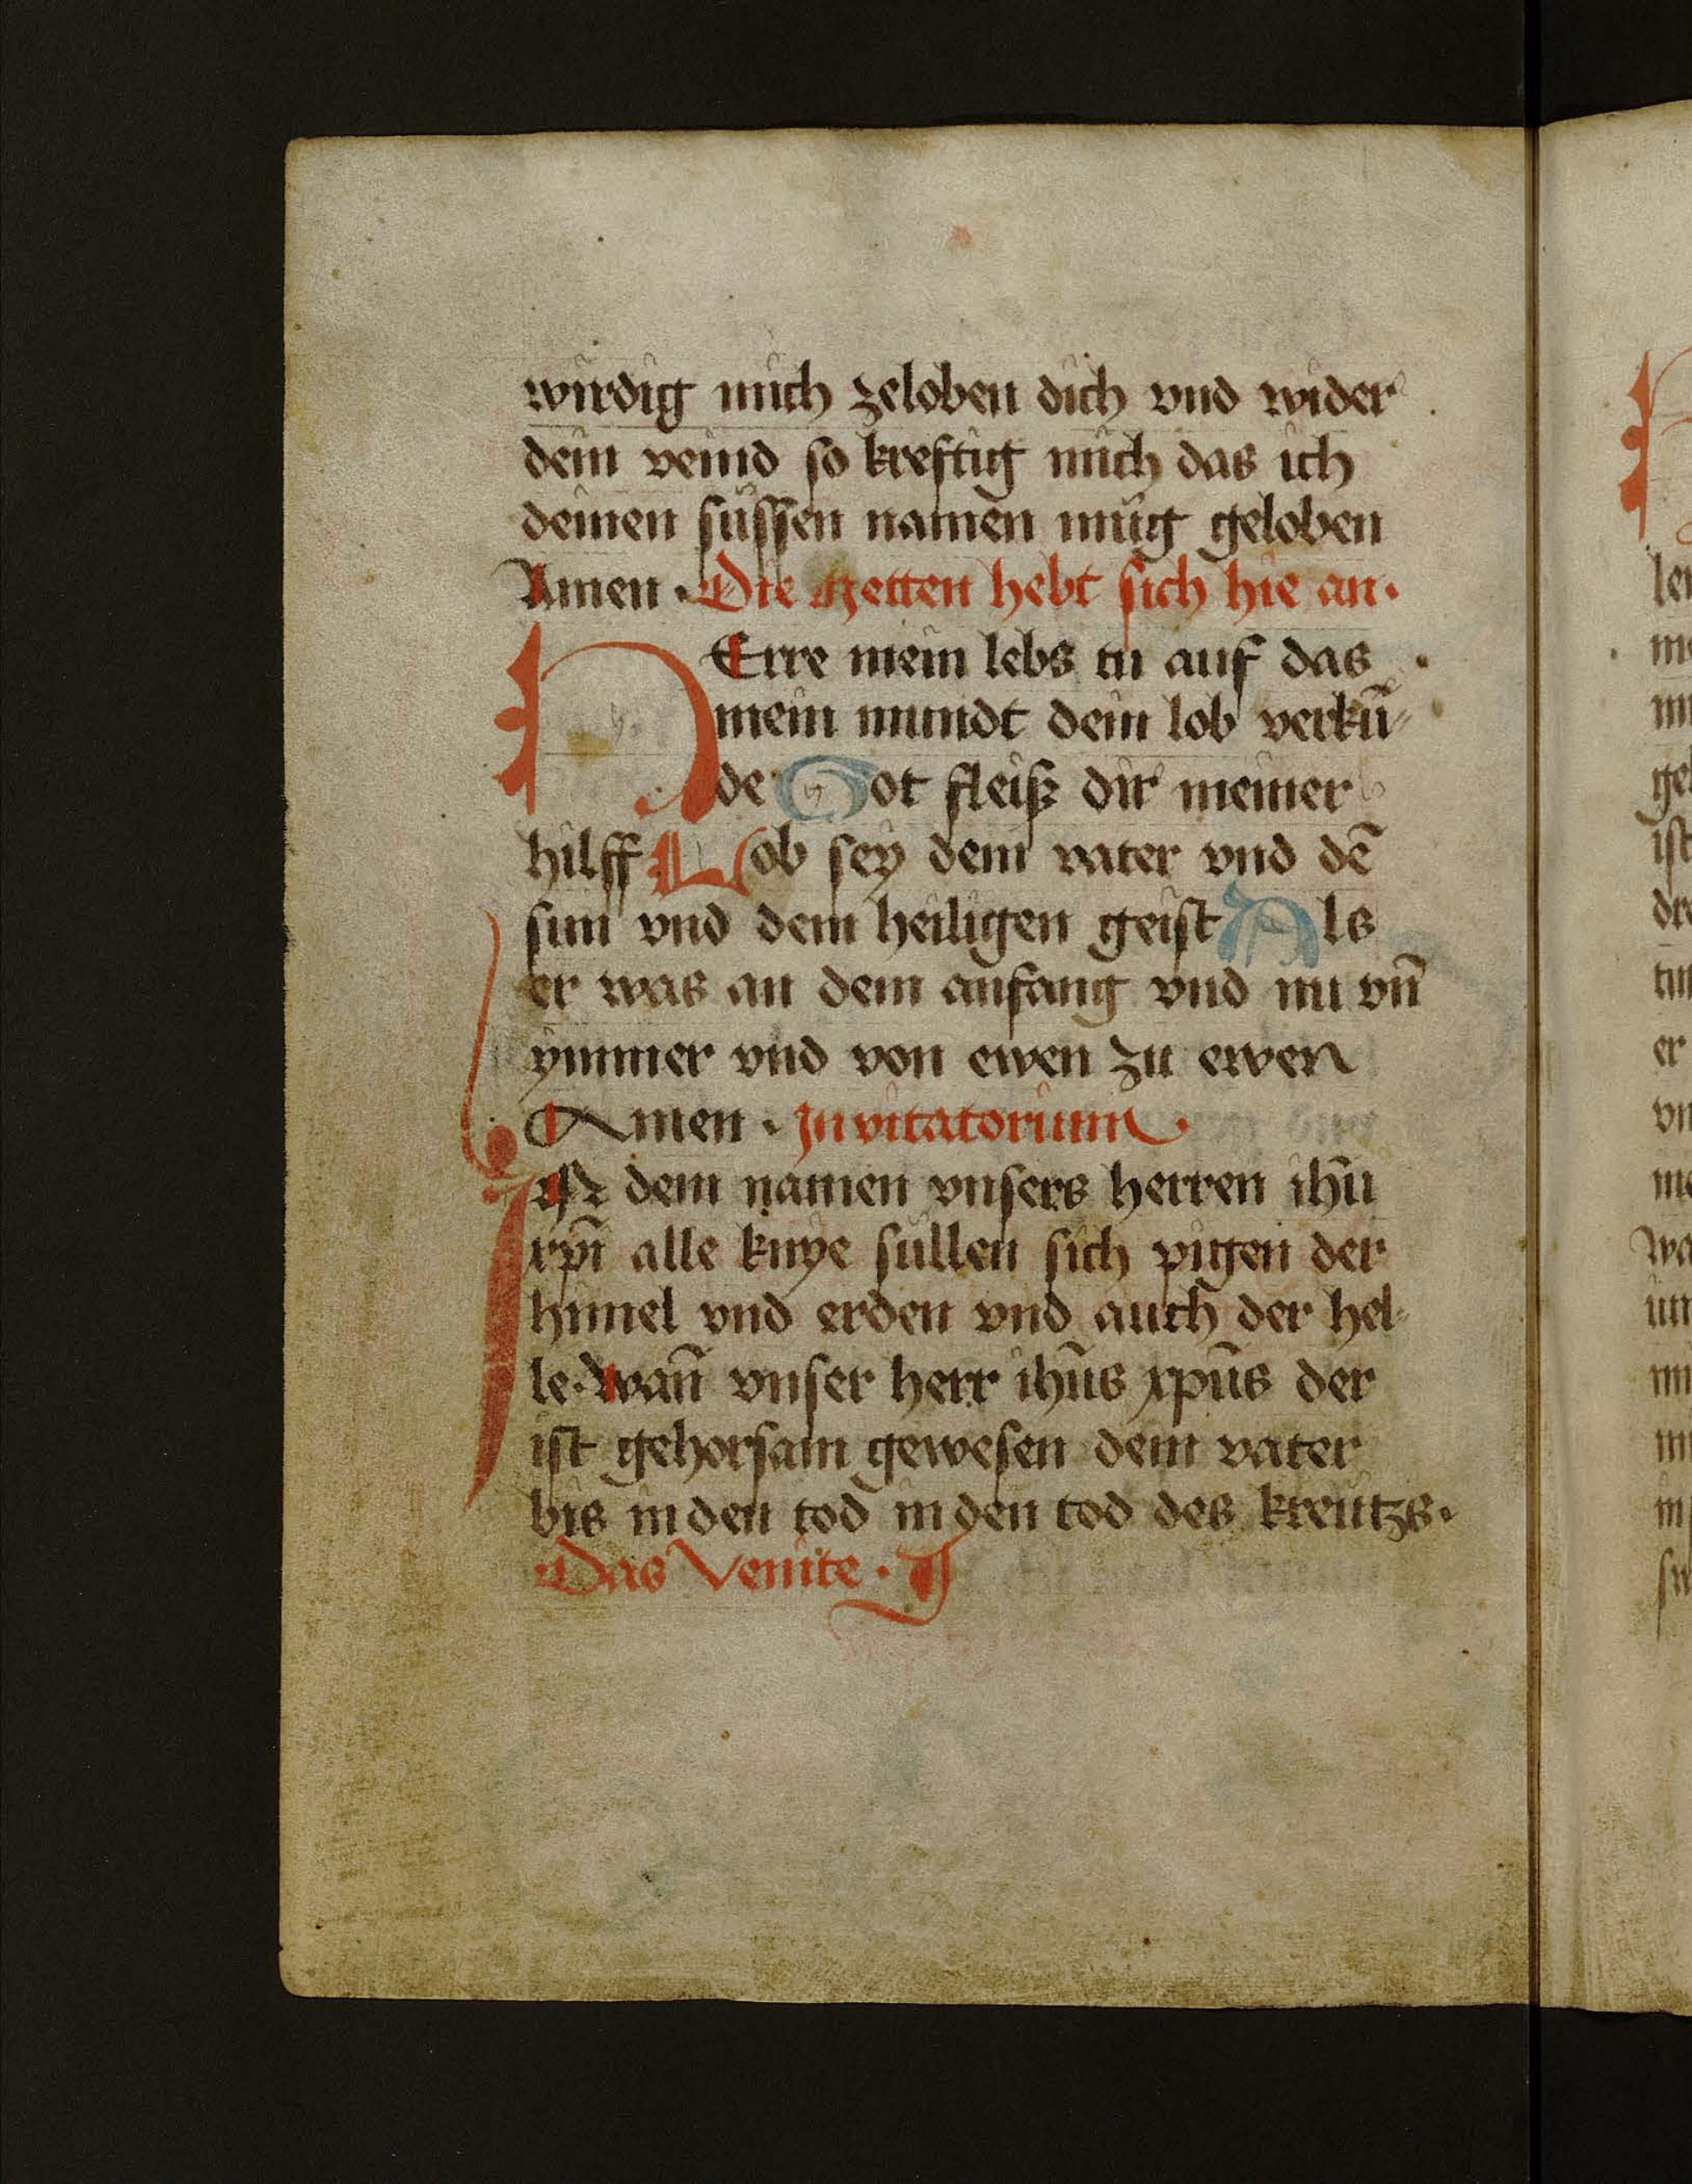 wirdig mich zeloben dich vnd wider
dein veind so kreftig mich das ich
deinen süssen namen müg geloben
Amen · Die Metten hebt sich hie an ·
HErre mein lebs tu auf das
mein mundt dein lob verkū⸗
de Got fleiß dir meiner
hilff Lob sey dem vater vnd dē
sun vnd dem heiligen geist Als
er was an dem anfang vnd nu vn̄
ymmer vnd von ewen zu ewen
Amen · Invitatorium ·
IN dem namen vnsers herren ihū
xpī alle knye süllen sich pigen der
himel vnd erden vnd auch der hel⸗
le · wan̄ vnser herr ihūs xpūs der
ist gehorsam gewesen dem vater
bis in den tod in den tod des kreützs ·
Das Venite ·